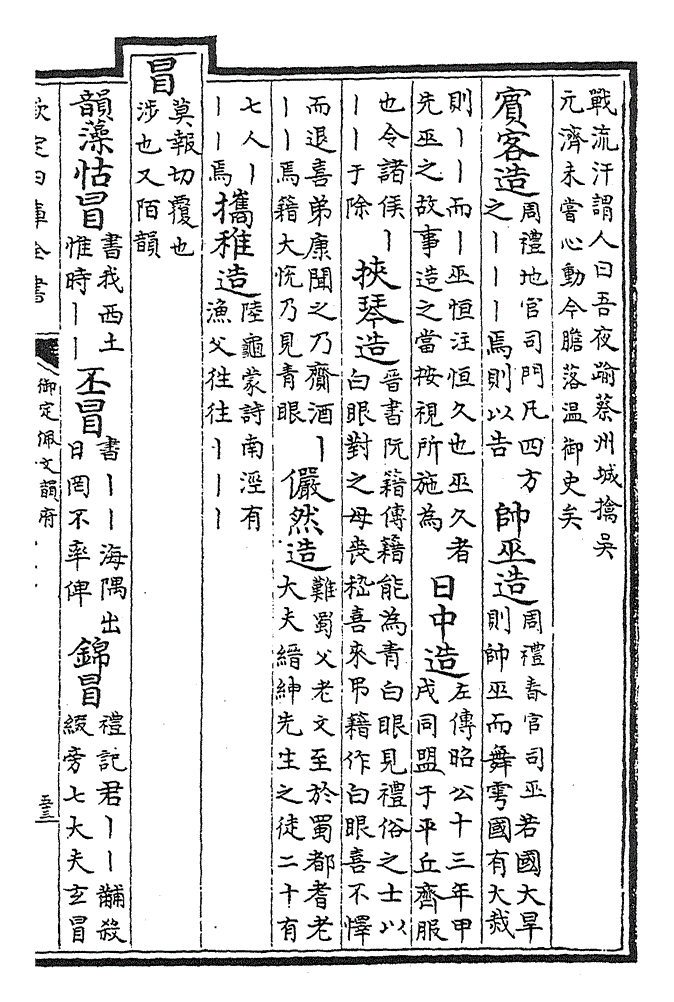 戰流汗謂人曰吾夜踰蔡州城擒吳
元濟未嘗心動今膽落温御史矣
賓客造
周禮地官司門凡四方
之丨丨丨焉則以告
帥巫造
周禮春官司巫若國大旱
則帥巫而舞雩國有大烖
則丨丨而丨巫恒注恒久也巫久者
先巫之故事造之當按視所施為
日中造
左傳昭公十三年甲
戌同盟于平丘齊服
也令諸侯丨
丨丨于除
挾琴造
晉書阮籍傳籍能為青白眼見禮俗之士以
白眼對之母喪嵇喜來弔籍作白眼喜不懌
而退喜弟康聞之乃齎酒丨
丨丨焉籍大恱乃見青眼
儼然造
難蜀父老文至於蜀都耆老
大夫縉紳先生之徒二十有
七人丨
丨丨焉
攜稚造
陸龜蒙詩南涇有
漁父往往丨丨丨
冒
莫報切覆也
涉也又陌韻
韻藻怙冒
書我西土
惟時丨丨
丕冒
書丨丨海隅出
日罔不率俾
錦冒
禮記君丨丨黼殺
綴旁七大夫玄冒
欽定四庫全書
御定佩文韻府